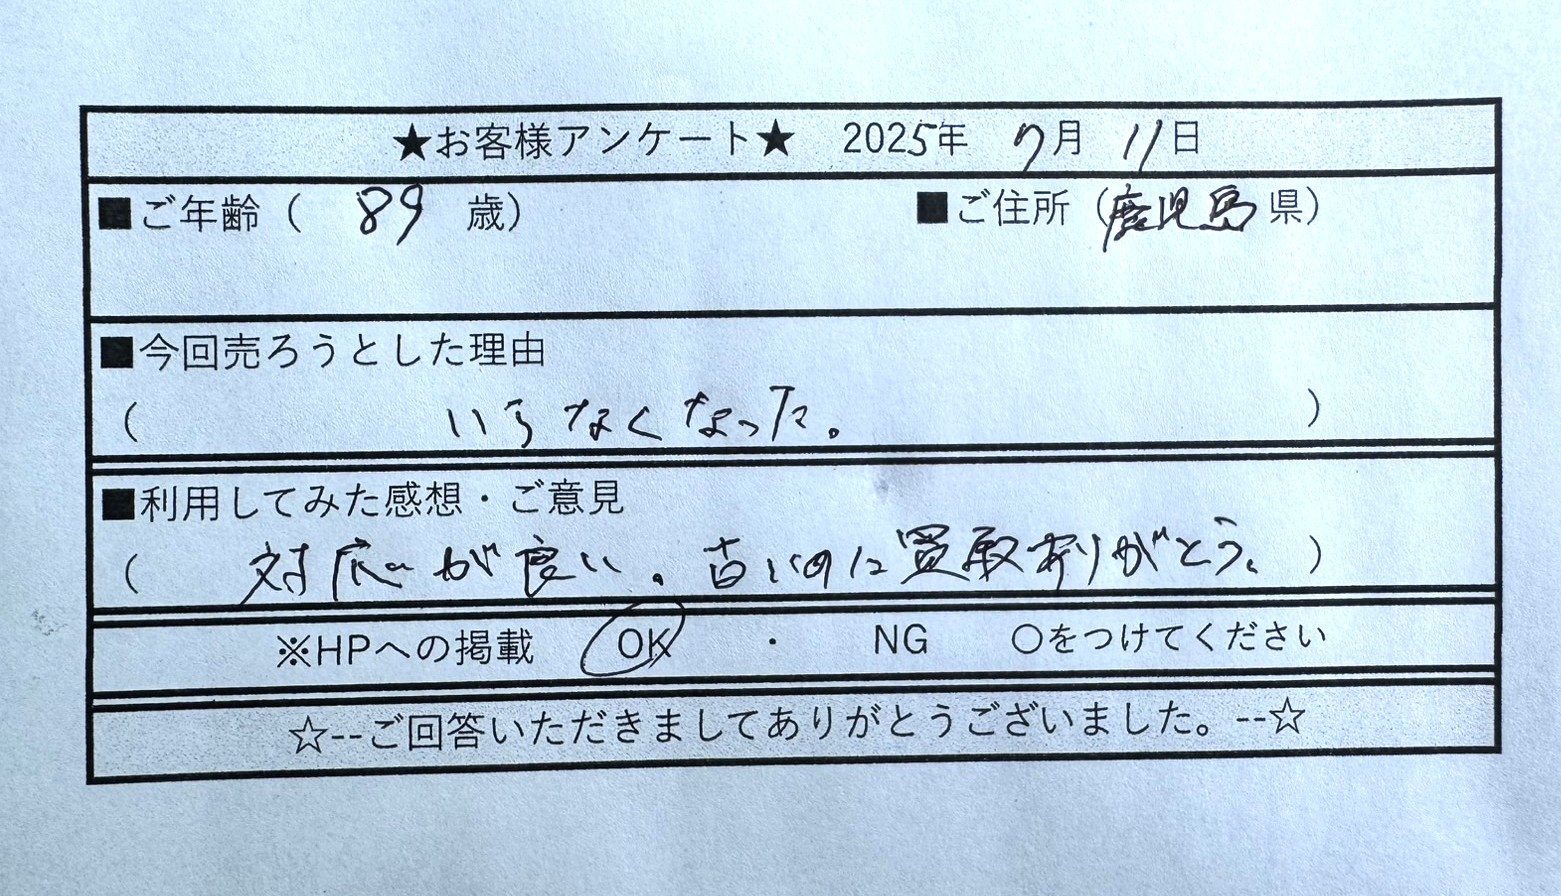 ★お客様アンケート★ 2025年 7月 11日
■ご年齢( 89 歳) ■ご住所(鹿児島県)
■今回売ろうとした理由
( いらなくなった。 )
■利用してみた感想・ご意見
( 対応が良い。古いのに買取ありがとう。 )
※HPへの掲載 OK ・ NG ○をつけてください
☆--ご回答いただきましてありがとうございました。--☆